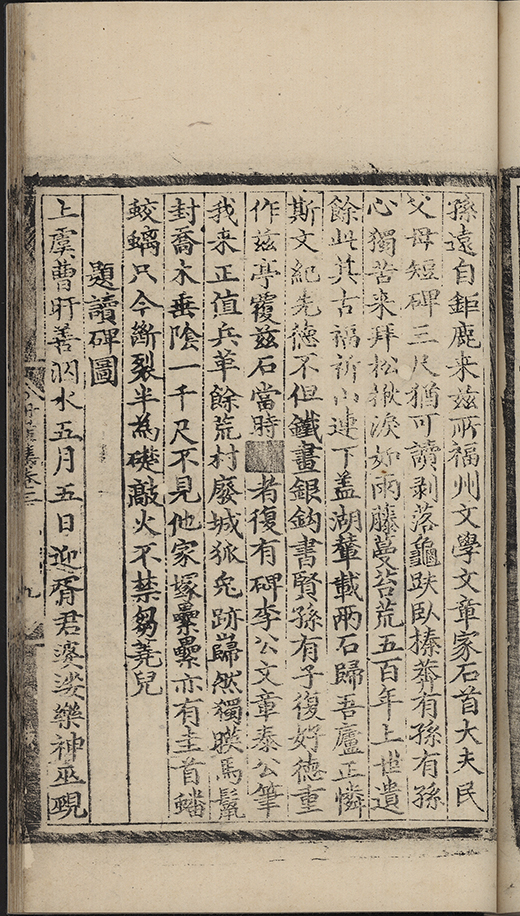 孫遠自鉅鹿来兹所福州文學文章家石首大夫民
父母短碑三尺猶可讀剥落龜趺臥榛莽有孫有孫
心獨苦来拜松楸淚如雨藤蔓苔荒五百年上世遺
餘此其古福祈山連丁盖湖輦載兩石歸吾廬正憐
斯文紀先德不但鐵畫銀鈎書賢孫有子復好德重
作兹亭覆兹石當時者復有碑李公文章泰公筆
我来正值兵革餘荒村廢城狐兔跡巋然獨膜馬鬣
封喬木垂陰一千尺不見他家塚纍纍亦有圭首蟠
蛟螭只今斷裂半為礎敲火不禁芻蕘兒
題讀碑圖
上虞曹盱善泅水五月五日迎胥君婆娑樂神巫覡
集卷三
九